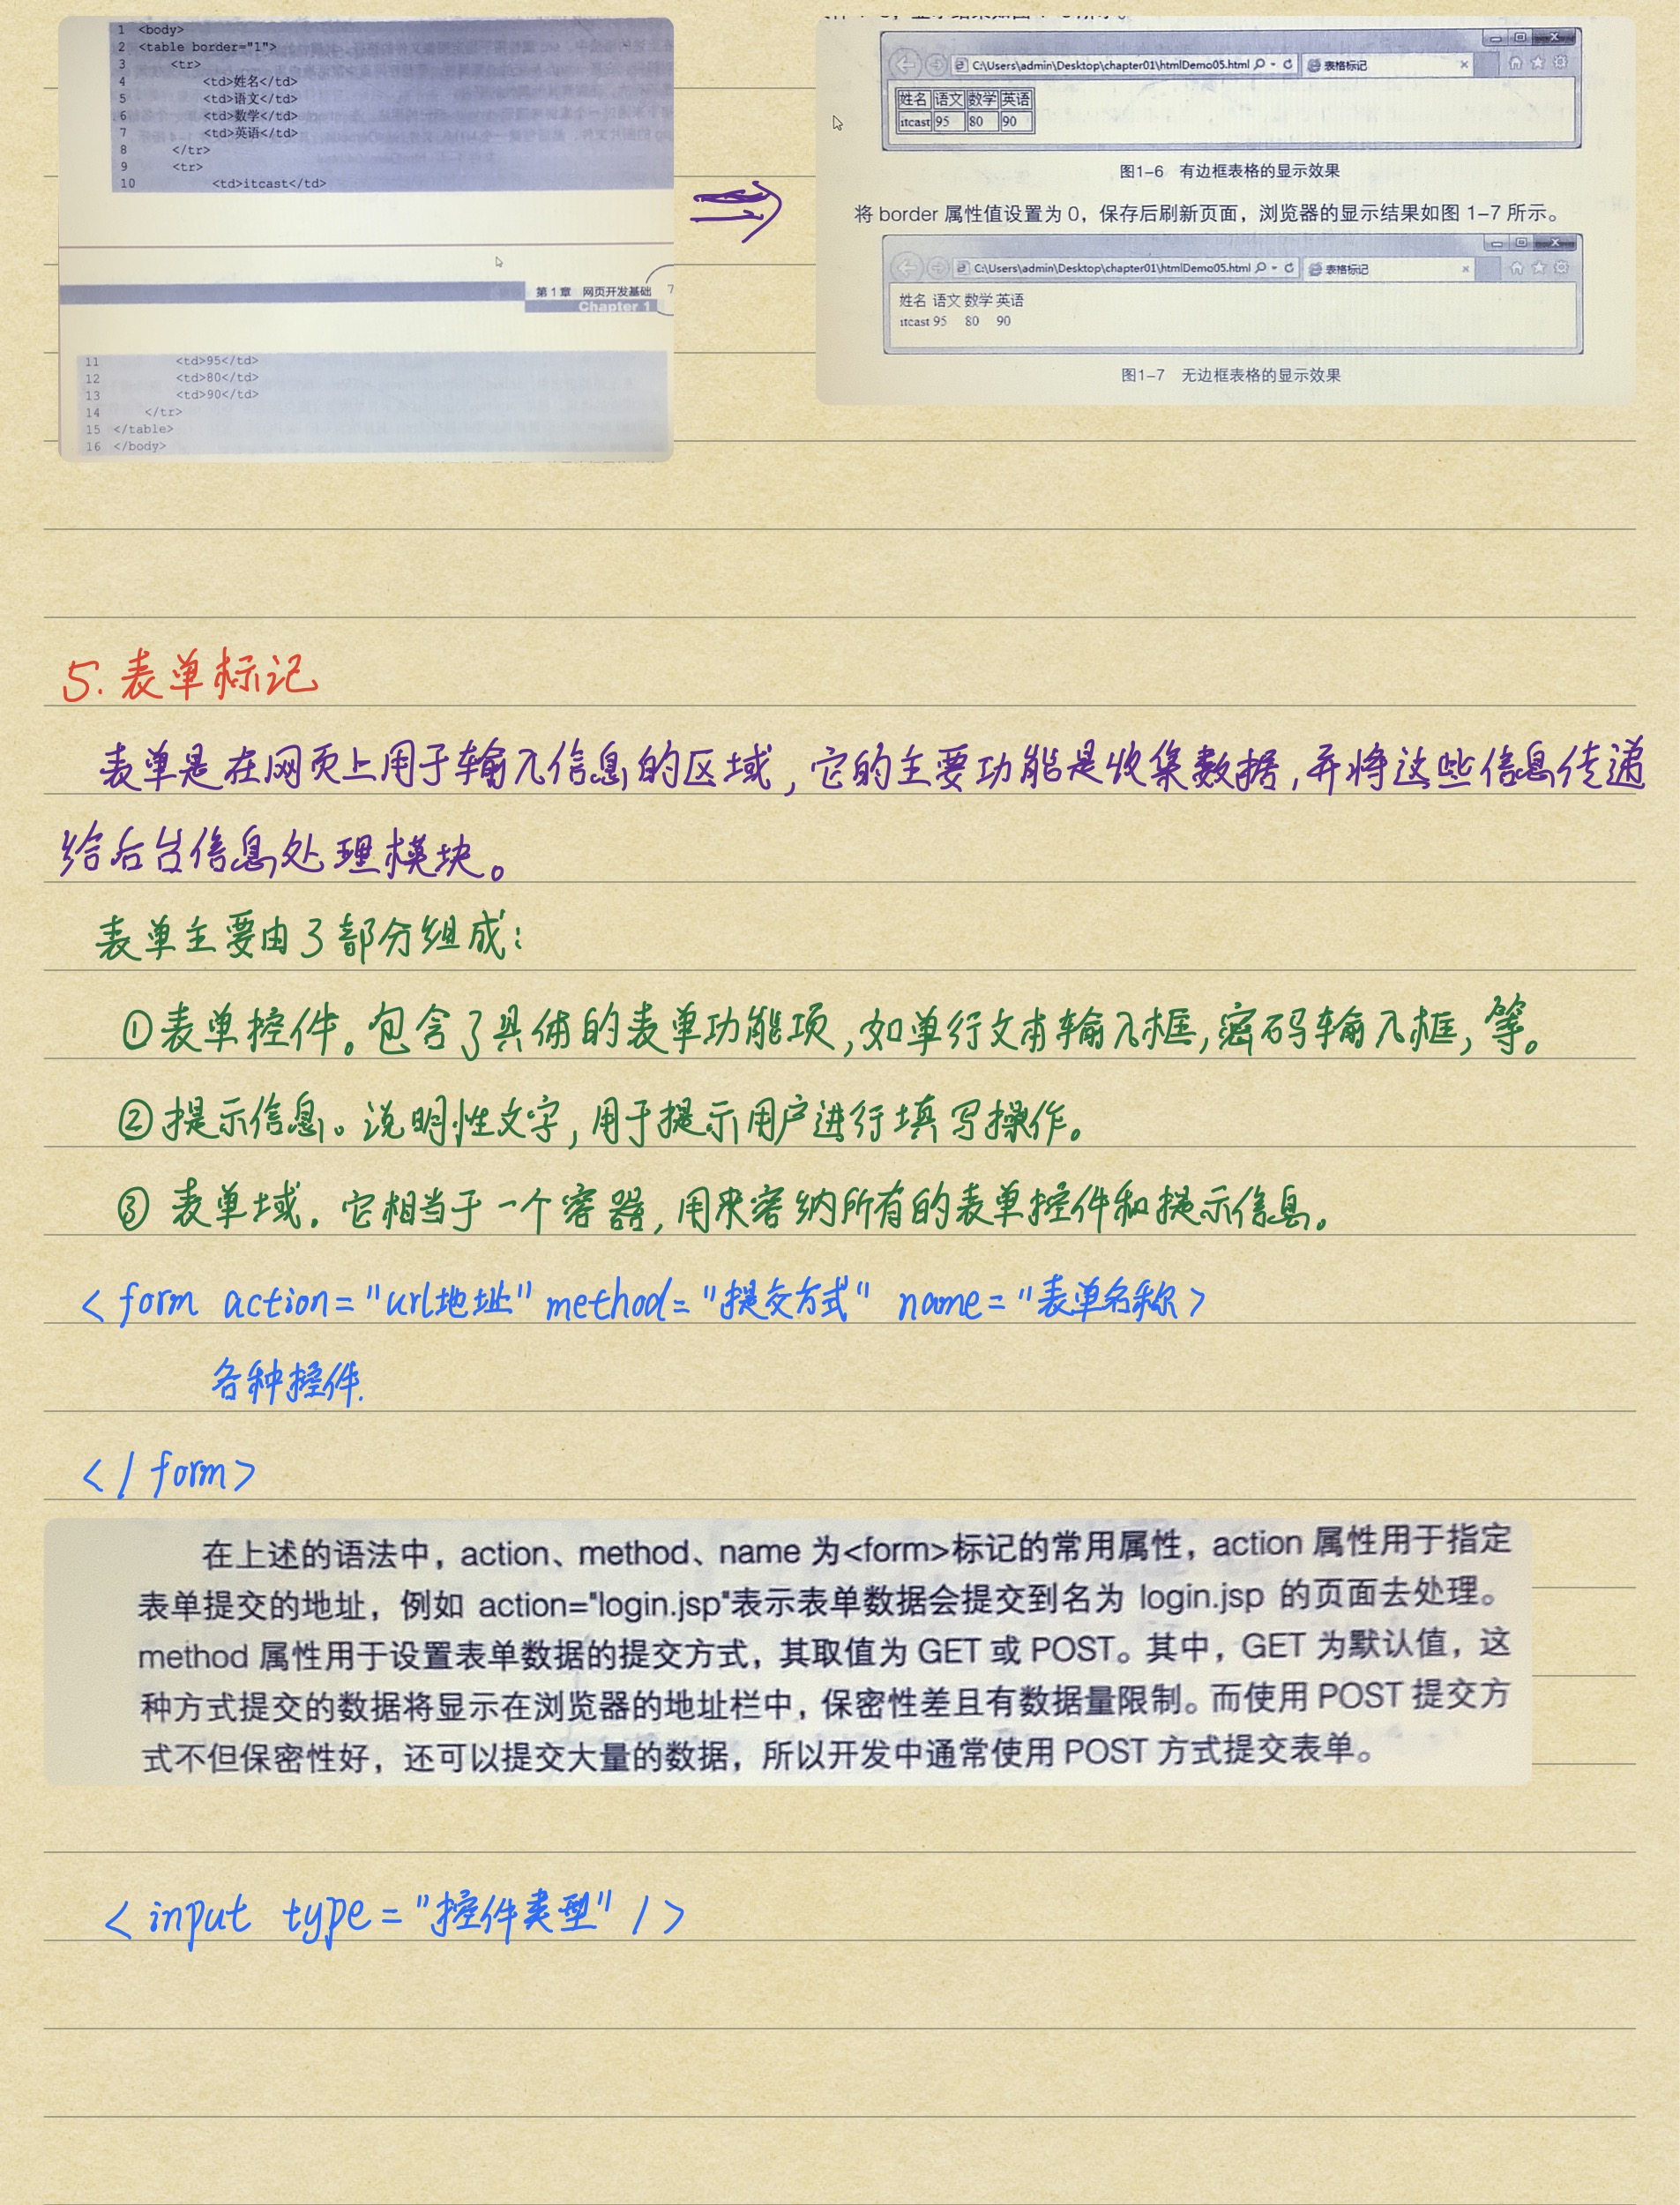 1 <body>
2 <table border="1">
3 <tr>
4 <td>姓名</td>
5 <td>语文</td>
6 <td>数学</td>
7 <td>英语</td>
8 </tr>
9 <tr>
10 <td>itcast</td>
第1章 网页开发基础 7
Chapter 1
11 <td>95</td>
12 <td>80</td>
13 <td>90</td>
14 </tr>
15 </table>
16 </body>
C:\Users\admin\Desktop\chapter01\htmlDemo05.html 表格标记
姓名 语文 数学 英语
itcast 95 80 90
图1-6 有边框表格的显示效果
将 border 属性值设置为 0，保存后刷新页面，浏览器的显示结果如图 1-7 所示。
C:\Users\admin\Desktop\chapter01\htmlDemo05.html 表格标记
姓名 语文 数学 英语
itcast 95 80 90
图1-7 无边框表格的显示效果
5. 表单标记
表单是在网页上用于输入信息的区域，它的主要功能是收集数据，并将这些信息传递
给后台信息处理模块。
表单主要由3部分组成：
①表单控件。包含了具体的表单功能项，如单行文本输入框，密码输入框，等。
②提示信息。说明性文字，用于提示用户进行填写操作。
③ 表单域. 它相当于一个容器，用来容纳所有的表单控件和提示信息。
< form action="url地址" method="提交方式" name="表单名称>
各种控件.
</form>
在上述的语法中，action、method、name 为<form>标记的常用属性，action 属性用于指定
表单提交的地址，例如 action="login.jsp"表示表单数据会提交到名为 login.jsp 的页面去处理。
method 属性用于设置表单数据的提交方式，其取值为 GET 或 POST。其中，GET 为默认值，这
种方式提交的数据将显示在浏览器的地址栏中，保密性差且有数据量限制。而使用 POST 提交方
式不但保密性好，还可以提交大量的数据，所以开发中通常使用 POST 方式提交表单。
< input type="控件类型" />